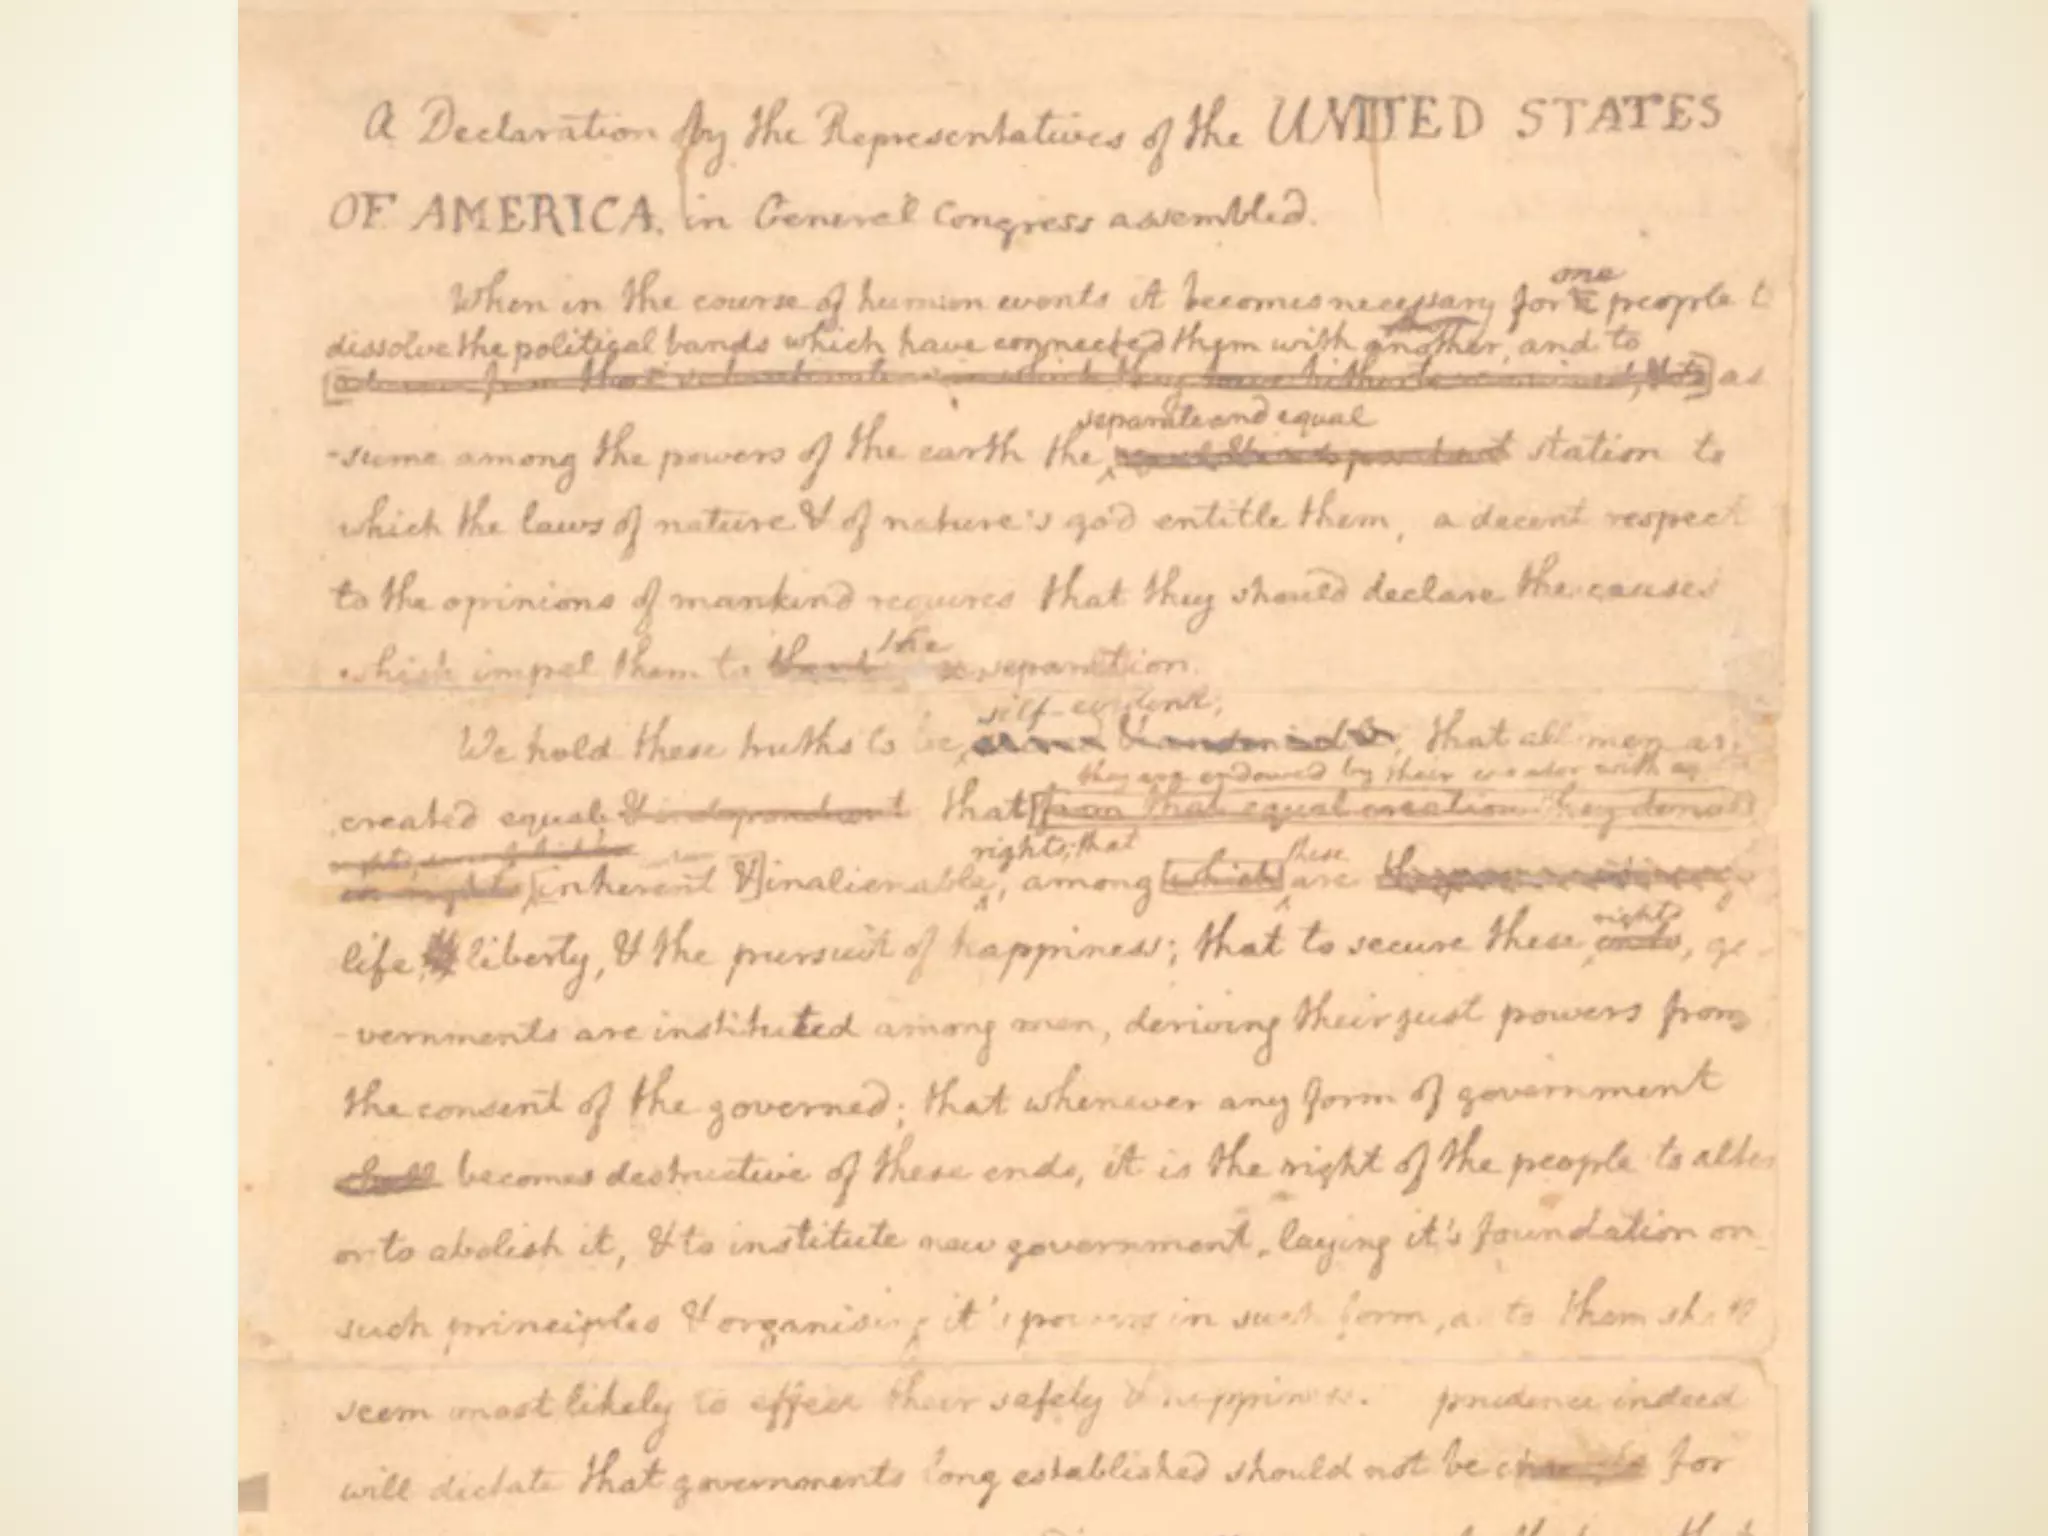 A Declaration by the Representatives of the UNITED STATES
OF AMERICA, in General Congress assembled.
one
When in the course of human events it becomes necessary for a people t
dissolve the political bands which have connected them with another, and to
advance from that subordination in which they have hitherto remained, & to as
separate and equal
-sume among the powers of the earth the equal & independant station to
which the laws of nature & of nature's god entitle them, a decent respect
to the opinions of mankind requires that they should declare the causes
the
which impel them to the separation.
self-evident;
We hold these truths to be sacred & undeniable; that all men are
they are endowed by their creator with
created equal & independant that from that equal creation they derive
rights; that
these
inherent & inalienable, among which are
rights
life, liberty, & the pursuit of happiness; that to secure these ends, go-
-vernments are instituted among men, deriving their just powers from
the consent of the governed; that whenever any form of government
shall becomes destructive of these ends, it is the right of the people to alter
or to abolish it, & to institute new government, laying it's foundation on
such principles & organising it's powers in such form, as to them shall
seem most likely to effect their safety & happiness. prudence indeed
will dictate that governments long established should not be changed for